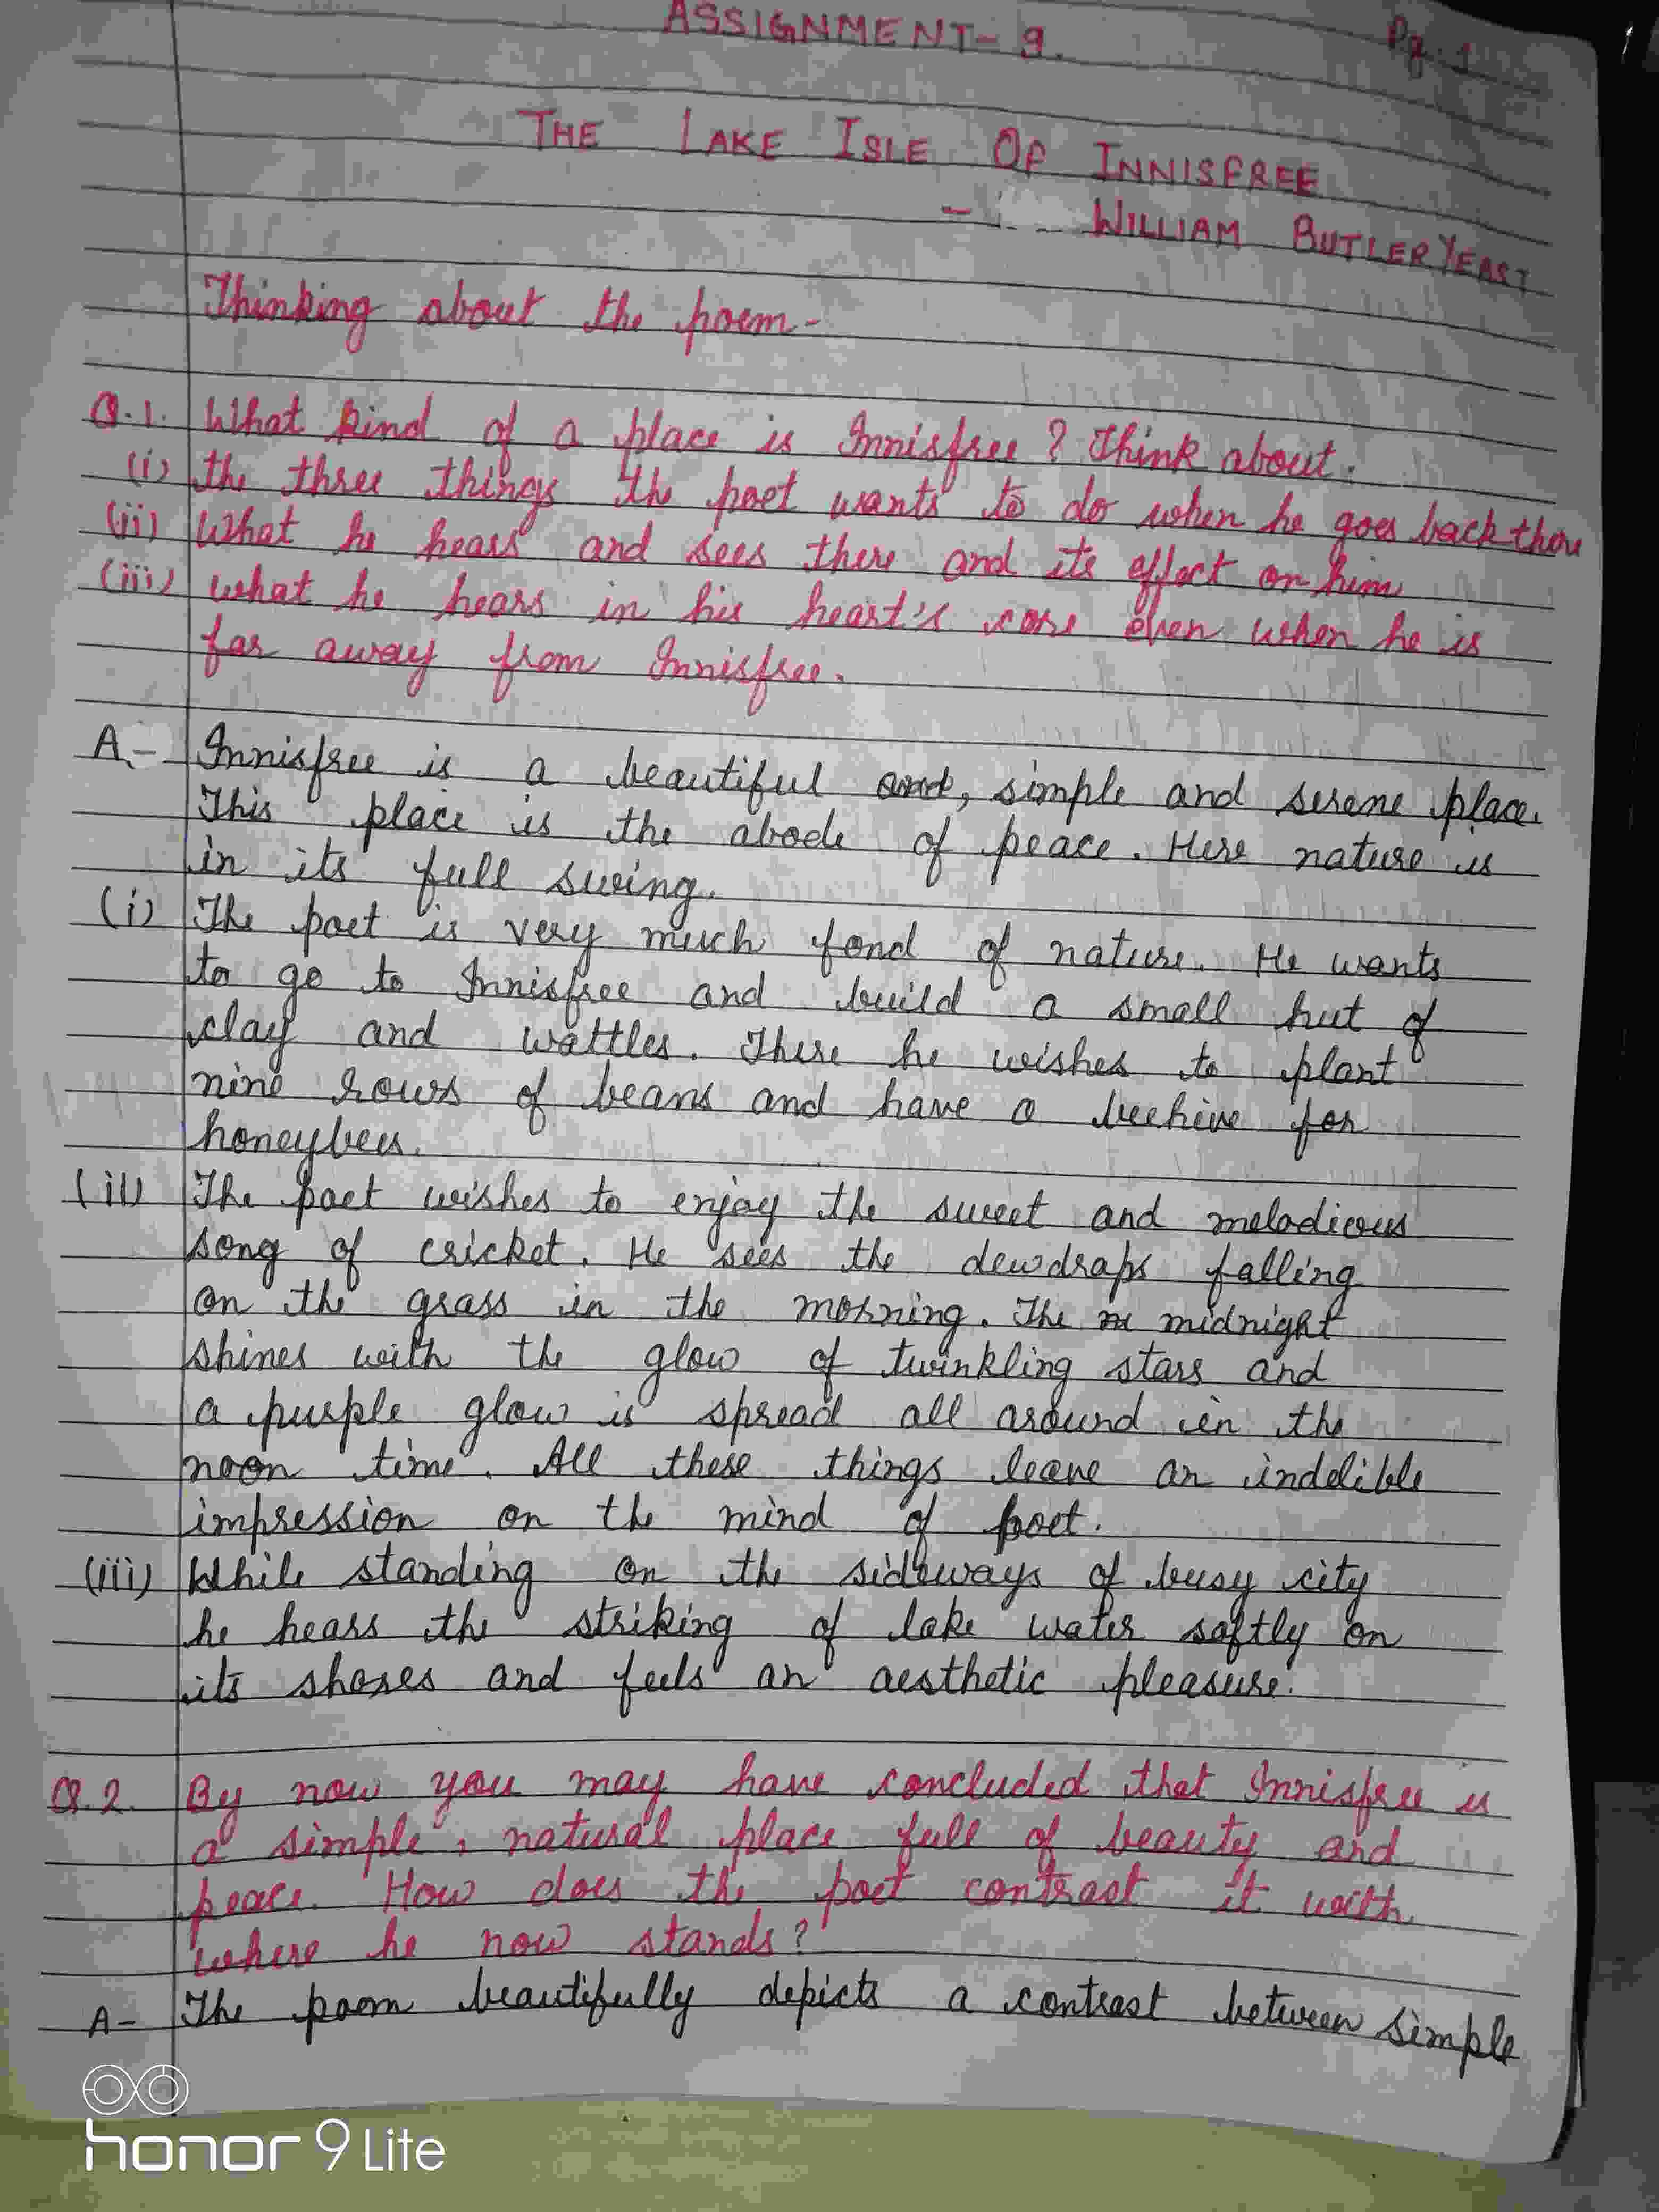 ASSIGNMENT- 9.
Pg. 1
THE LAKE ISLE OF INNISFREE
- WILLIAM BUTLER YEAST
Thinking about the poem-
Q.1. What kind of a place is Innisfree? Think about:
(i) the three things the poet wants to do when he goes back there
(ii) What he hears and sees there and its effect on him
(iii) what he hears in his heart's core even when he is
far away from Innisfree.
A- Innisfree is a beautiful and, simple and serene place.
This place is the abode of peace. Here nature is
in its full swing.
(i) The poet is very much fond of nature. He wants
to go to Innisfree and build a small hut of
clay and wattles. There he wishes to plant
nine rows of beans and have a beehive for
honeybees.
(ii) The poet wishes to enjoy the sweet and melodious
song of cricket. He sees the dewdrops falling
on the grass in the morning. The m midnight
shines with the glow of twinkling stars and
a purple glow is spread all around in the
noon time. All these things leave an indelible
impression on the mind of poet.
(iii) While standing on the sideways of busy city
he hears the striking of lake water softly on
its shores and feels an aesthetic pleasure.
Q.2. By now you may have concluded that Innisfree is
a simple, natural place full of beauty and
peace. How does the poet contrast it with
where he now stands?
A- The poem beautifully depicts a contrast between simple
honor 9 Lite